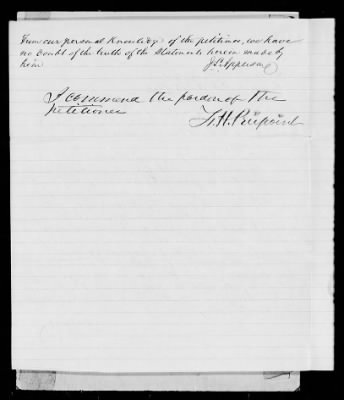 From our personal knowledge of the petitioner, we have
no doubt of the truth of the statements herein made by
him
J. L. Apperson
I recommend the pardon of the
petitioner
F. H. Peirpoint